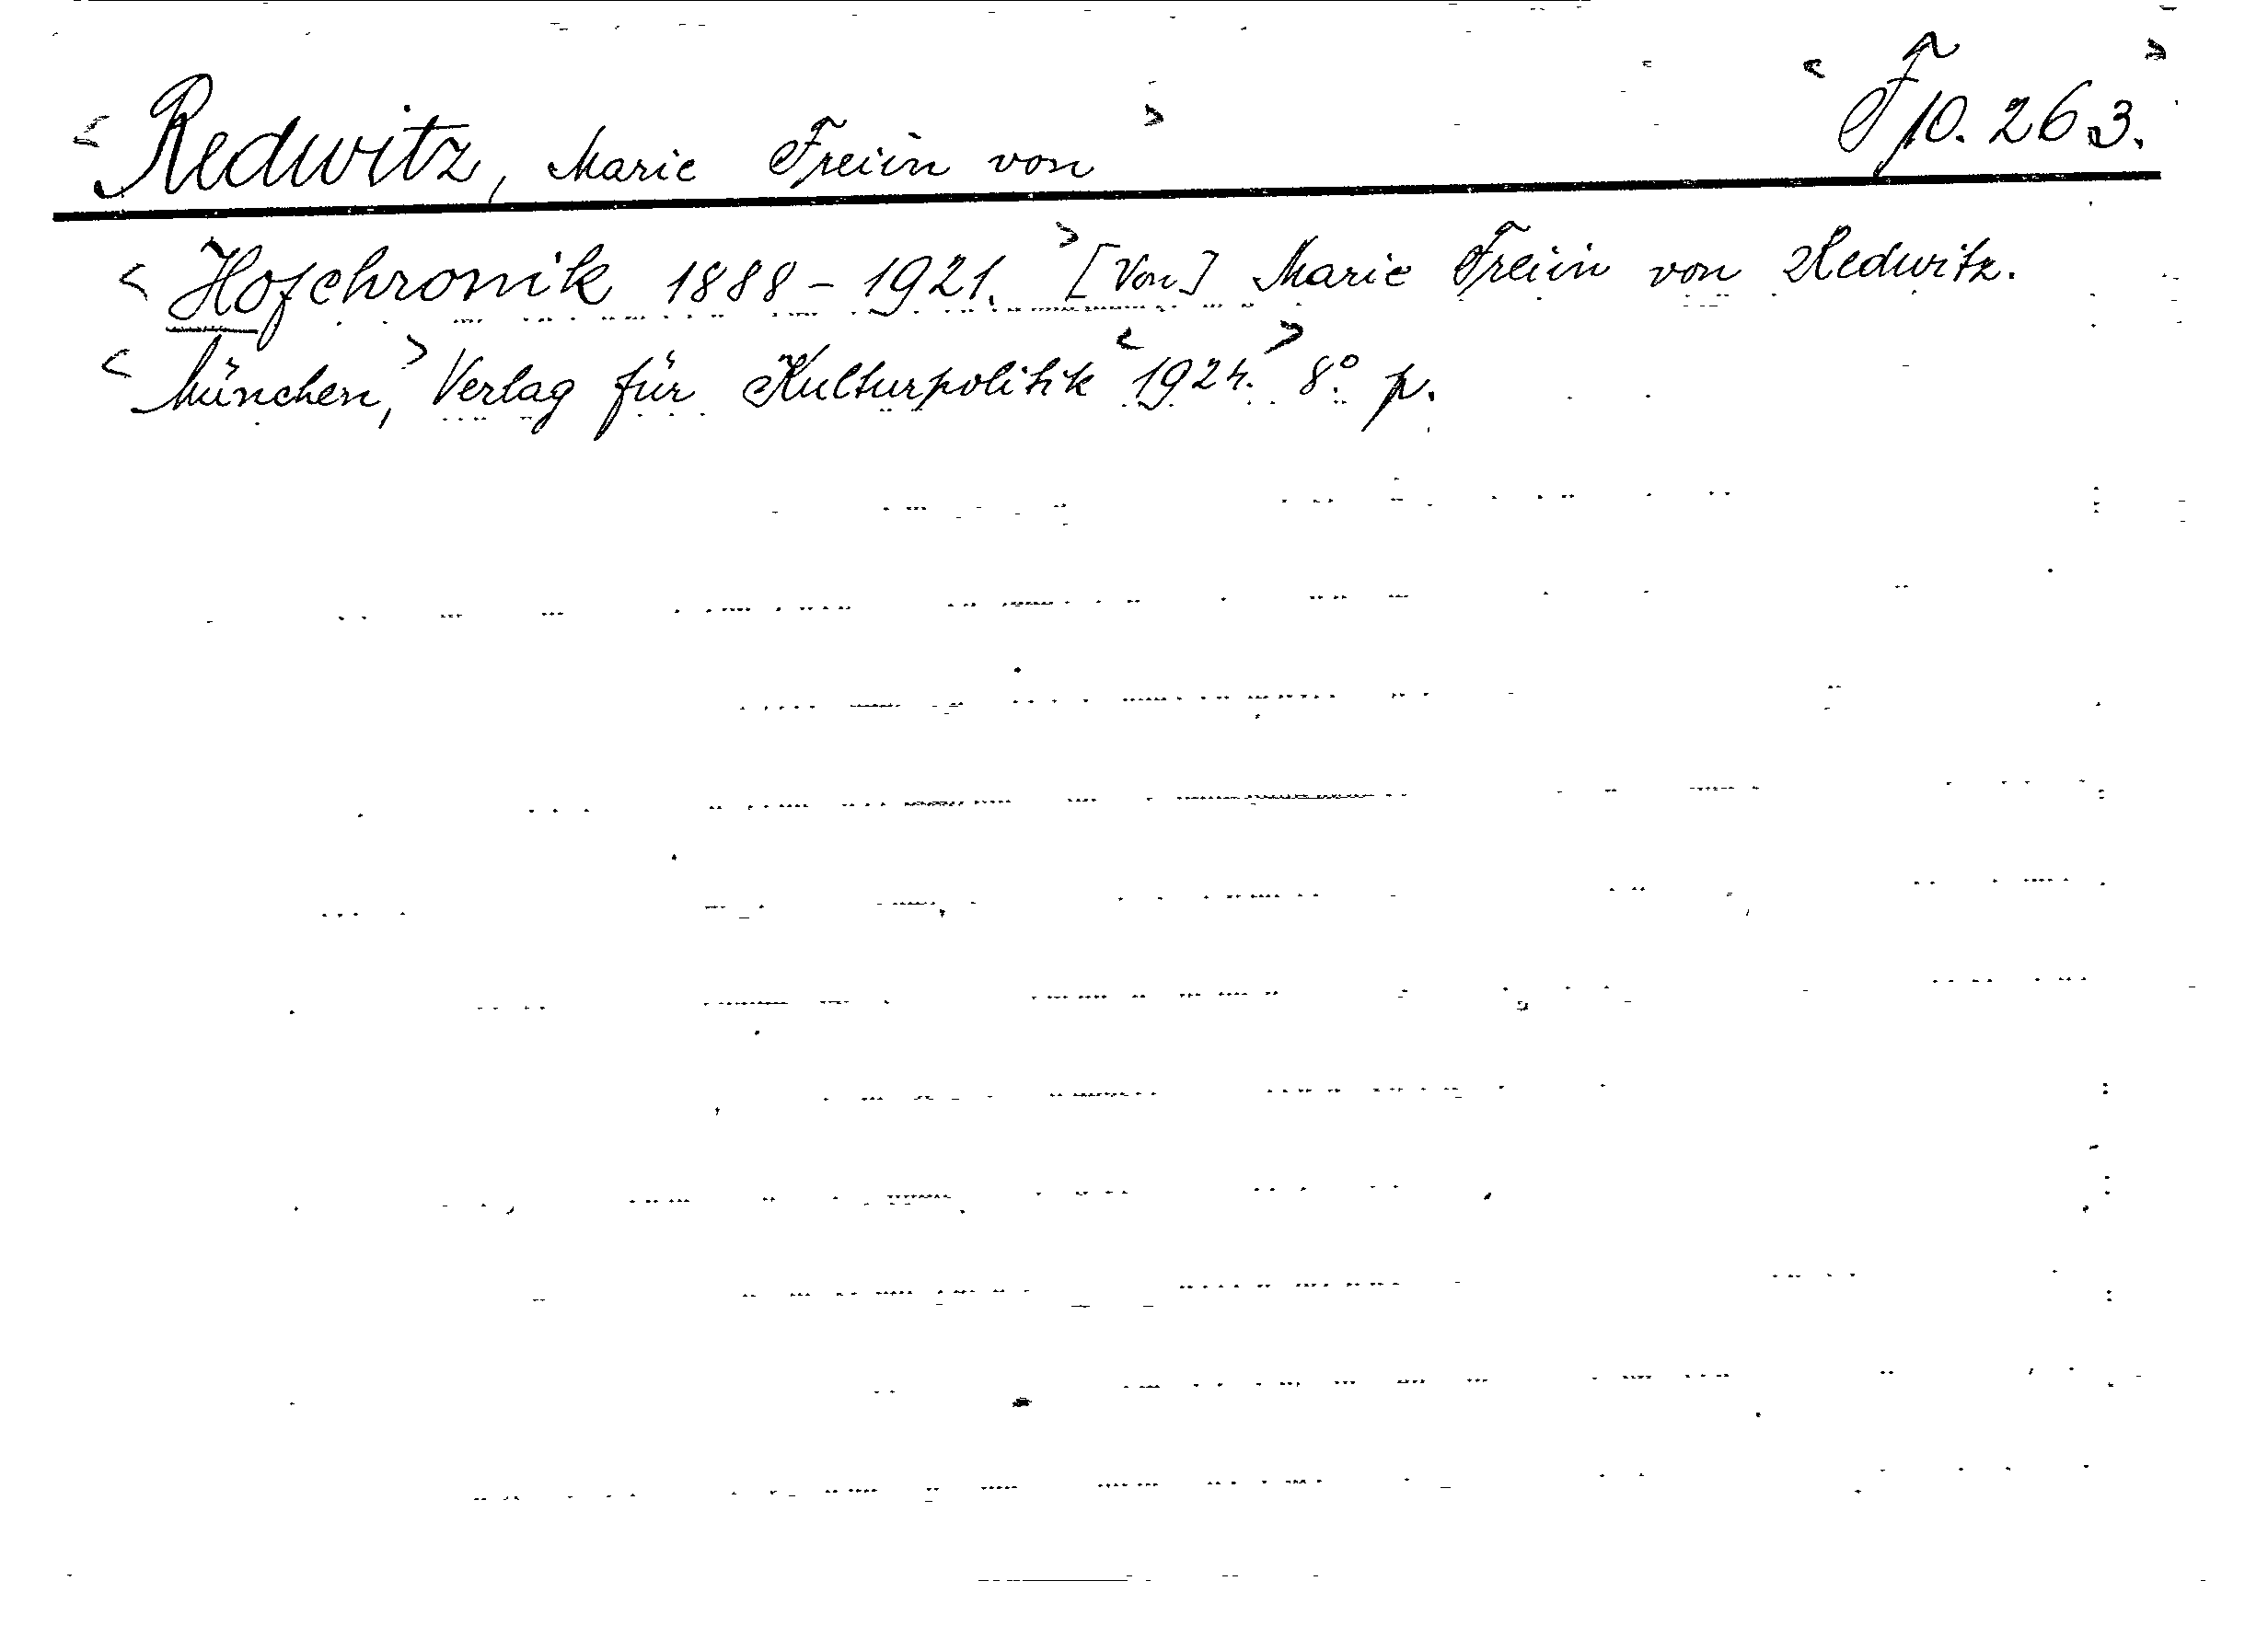 < Redwitz, Marie Freiin von > < Fp. 263. >
< Hofchronik 1888 - 1921. > [Von] Marie Freiin von Redwitz.
< München, > Verlag für Kulturpolitik < 1924. > 8° p.